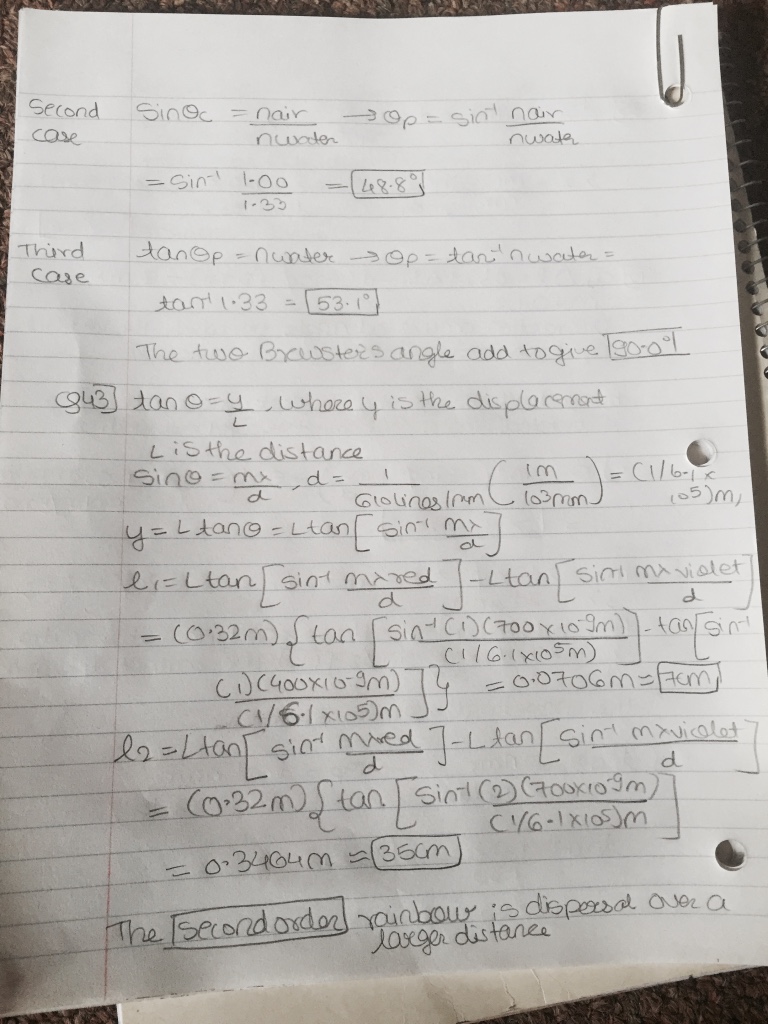 Second case sinθc = nair/nwater → θp = sin⁻¹ nair/nwater
= sin⁻¹ 1.00/1.33 = 48.8°
Third case tanθp = nwater → θp = tan⁻¹ nwater =
tan⁻¹ 1.33 = 53.1°
The two Brewster's angle add to give 90.0°
Q43] tanθ = y/L, where y is the displacement
L is the distance
sinθ = mλ/d, d = 1/610lines/mm (1m/103mm) = (1/6.1 x 105)m,
y = L tanθ = L tan [sin⁻¹ mλ/d]
l₁ = L tan [sin⁻¹ mλred/d] - L tan [sin⁻¹ mλviolet/d]
= (0.32m) {tan [sin⁻¹ (1)(700x10-9m)/(1/6.1x105m)] - tan [sin⁻¹
(1)(400x10-9m)/(1/6.1x105)m]} = 0.0706m = 7cm
l2 = L tan [sin⁻¹ mλred/d] - L tan [sin⁻¹ mλviolet/d]
= (0.32m) {tan [sin⁻¹ (2)(700x10-9m)/(1/6.1x105)m]
= 0.3464m = 35cm
The second order rainbow is dispersed over a
larger distance